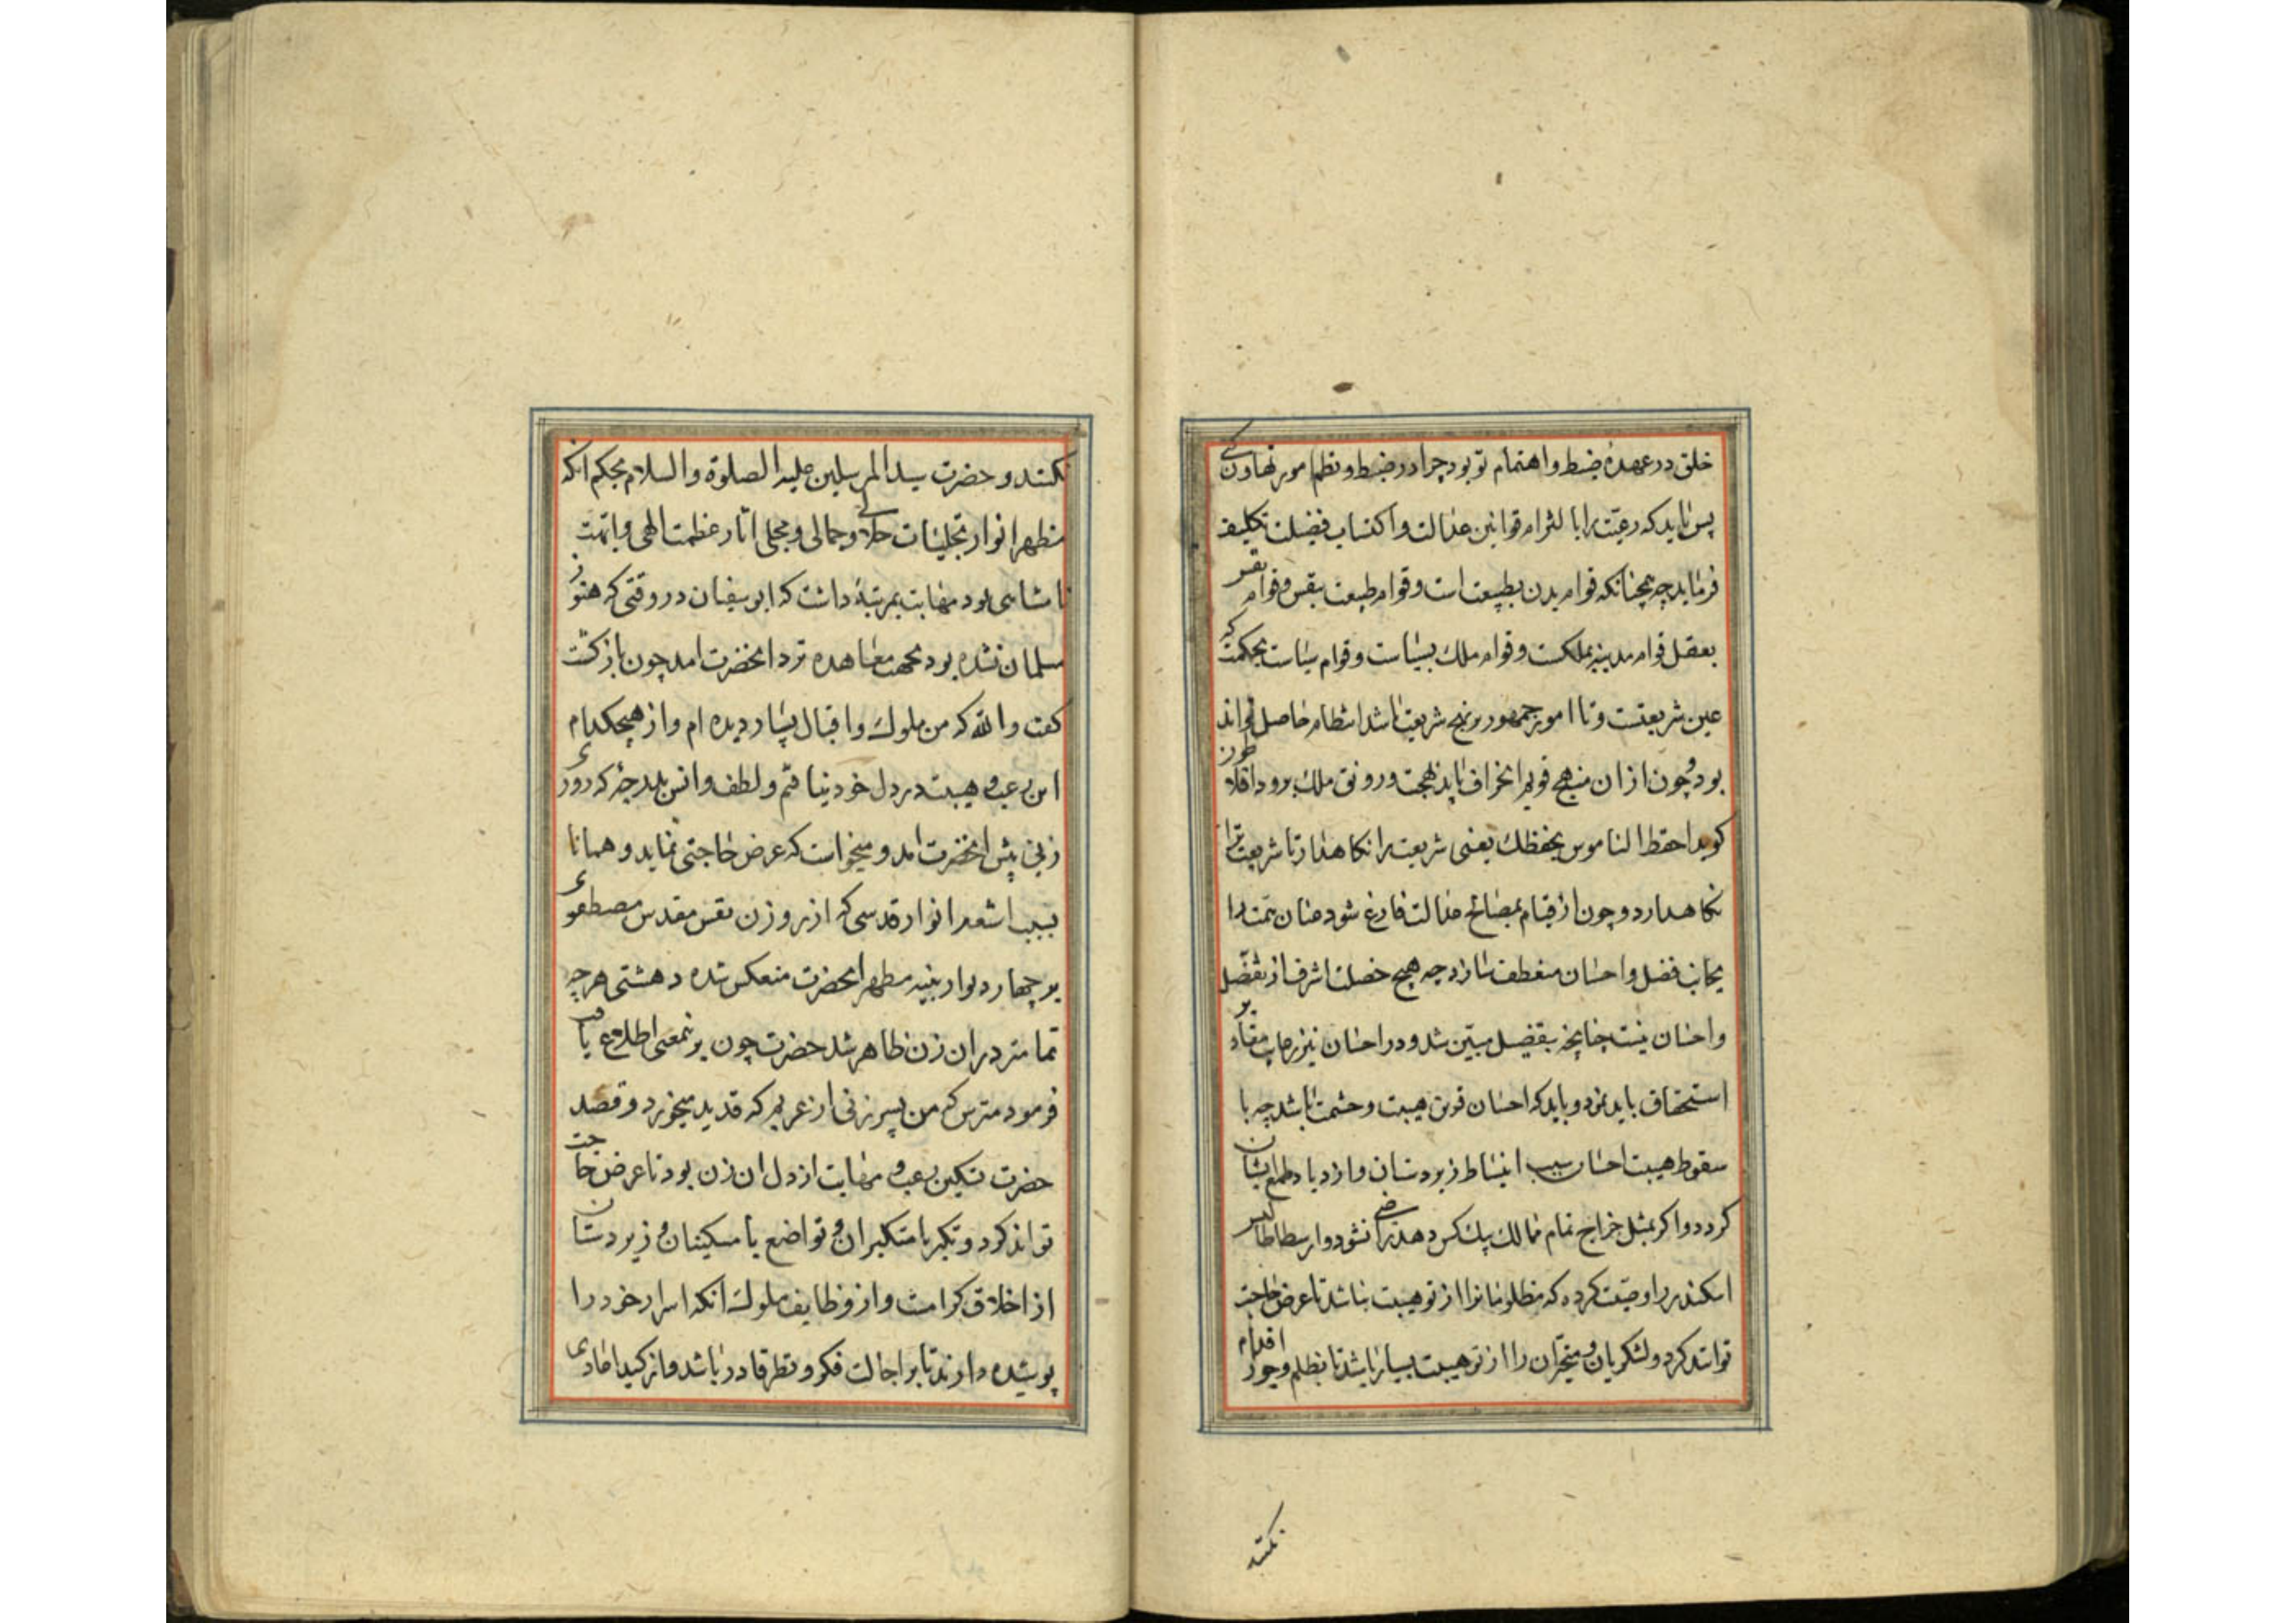 خلق در عهدهٔ ضبط و اهتمام تو بود چرا در ضبط و نظم امور تهاون کنی
پس باید که رعیت را با لتزام قوانین عدالت و اکتساب فضیلت تکلیف
فرماید چه همچنانکه قوام بدن بطبیعت است و قوام طبیعت بنفس و قوام نفس
بعقل قوام مدینه بملکست و قوام ملک بسیاست و قوام سیاست بحکمت که
عین شریعتست و تا امور جمهور بر نهج شریعت باشد انتظام حاصل تواند
بود و چون از ان منهج قویم انحراف یابد بهجت و رونق ملک برود افلاطون
کوید احفظ الناموس یحفظک یعنی شریعت را نکاهدار تا شریعت ترا
نکاهدارد و چون از قیام بمصالح عدالت فارغ شود عنان همت را
بجانب فضل و احسان منعطف سازد چه هیچ خصلت اشرف از تفضل
و احسان نیست چنانچه بتفضیل مبین شد و در احسان نیز رعایت مقادیر
استحقاق باید نمود و باید که احسان قرین هیبت و حشمت باشد چه با
سقوط هیبت احسان سبب انبساط زیردستان و ازدیاد طمع ایشان
کردد و اکر بمثل خراج تمام ممالک بیک کس دهد راضی نشود و ارسطاطالیس
اسکندر را وصیت کرده که مظلومانرا از تو هیبت نباشد تا عرض حاجت
توانند کرد و لشکریان و متجبران را از تو هیبت بسیار باشد تا بظلم و جور اقدام
نکنند
نکنند و حضرت سید المرسلین علیه الصلوة والسلام بحکم انکه
مظهر انوار تجلیات جلالی و جمالی و مجلی اثار عظمت الهی و ابهت
نامتناهی بود مهابت بمرتبهٔ داشت که ابو سفیان در وقتی که هنوز
مسلمان نشده بود بجهت معاهده نزد انحضرت امد چون بازکشت
کفت والله که من ملوک و اقبال بسیار دیده ام و از هیچکدام
این رعب و هیبت در دل خود نیافتم و لطف و انس بدرجهٔ که روزی
زنی پیش انحضرت امد و میخواست که عرض حاجتی نماید و همانا
بسبب اشعه انوار قدسی که از روزن نفس مقدس مصطفوی
بر چهار دیوار بنیه مطهر انحضرت منعکس شده دهشتی هر چه
تمامتر در ان زن ظاهر شد حضرت چون بر نمعنی اطلاع یافت
فرمود مترس که من پسر زنی از عربم که قدید میخورد و قصد
حضرت تسکین رعب و مهابت از دل ان زن بود تا عرض حاجت
تواند کرد و تکبر با متکبران و تواضع با مسکینان و زیردستان
از اخلاق کرامست و از وظایف ملوک انکه اسرار خود را
پوشیده دارند تا بر اجالت فکر و نظر قادر باشد و از کید اعادی